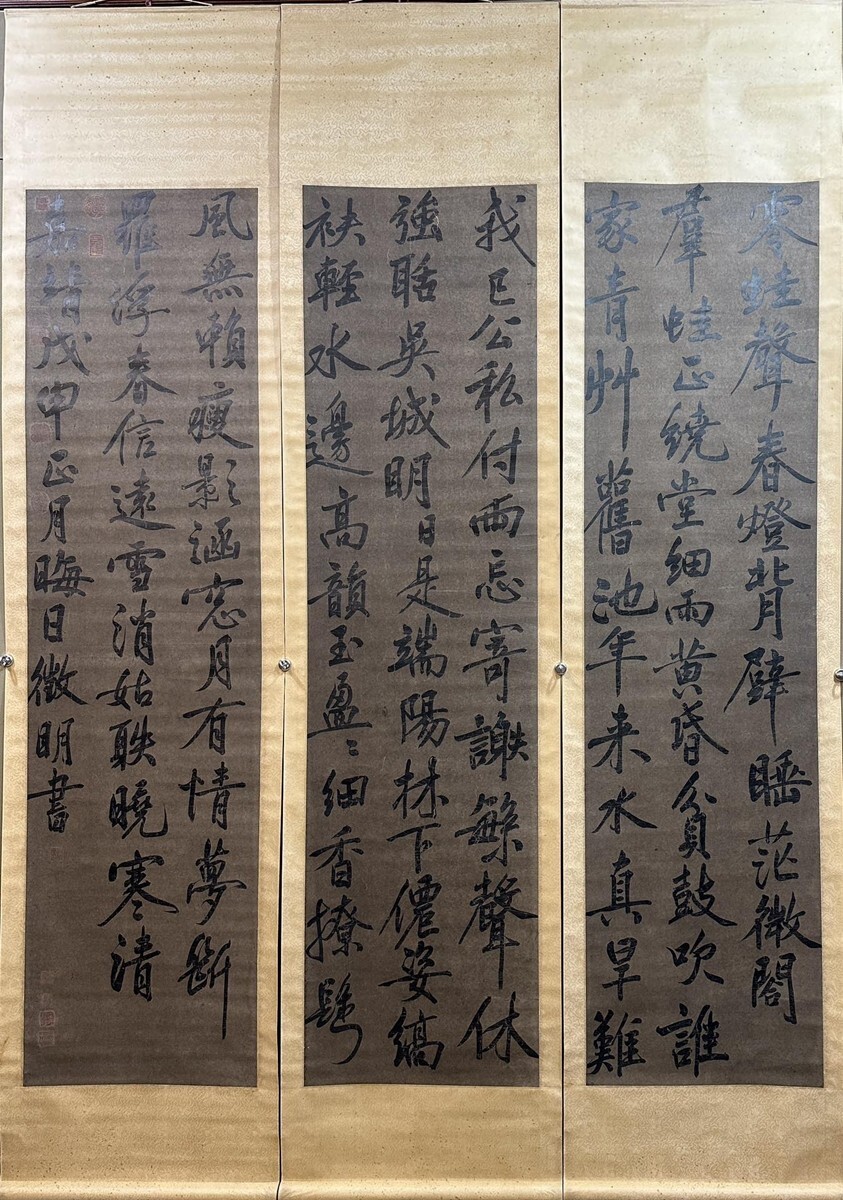 零蛙聲春燈背壁睡茫微閣
羣蛙正繞堂細雨黃昏貧鼓吹誰
家青艸舊池年来水真旱難
我已公私付兩忘寄謝繁聲休
強聒吳城明日是端陽林下僊姿縞
袂輕水邊高韻玉盈〻細香撩鬢
風無賴瘦影涵窓月有情夢斷
羅浮春信遠雪消姑昳曉寒清
嘉靖戊申正月晦日徵明書